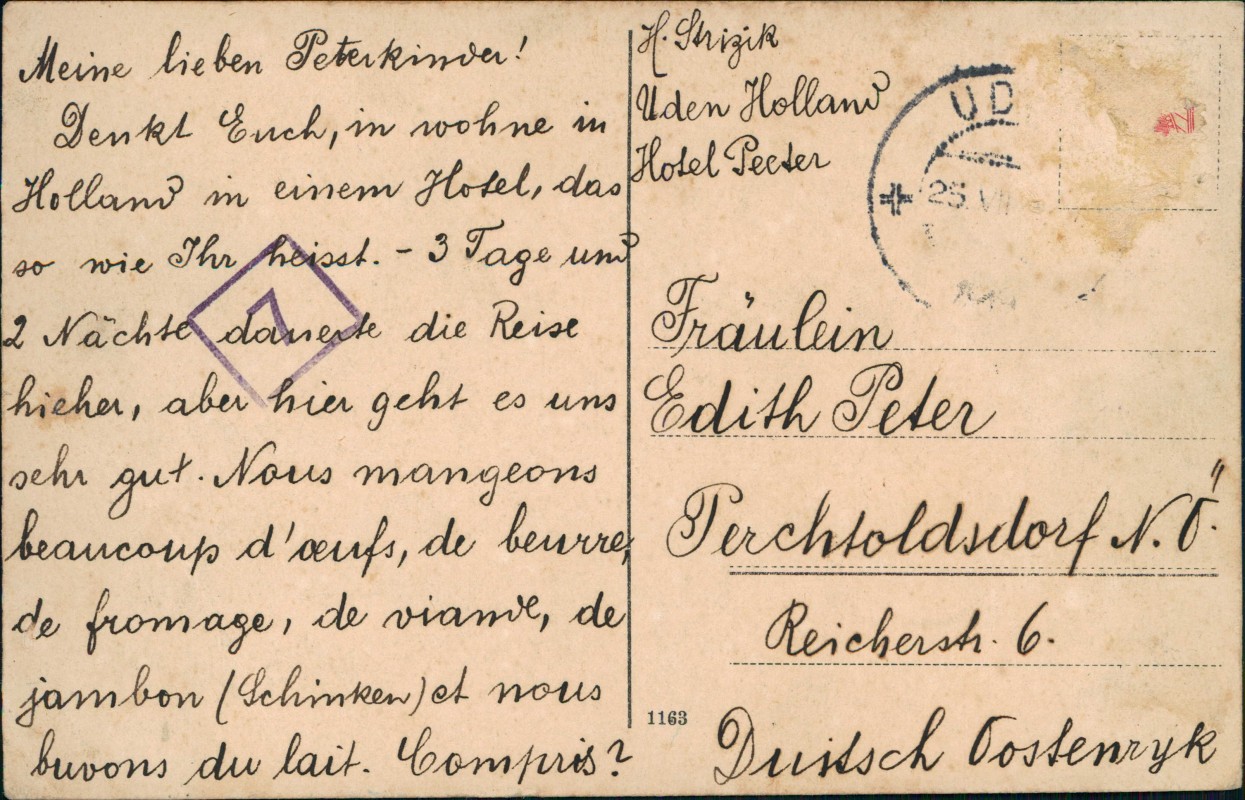 Meine lieben Peterkinder!
Denkt Euch, in wohne in
Holland in einem Hotel, das
so wie Ihr heisst. - 3 Tage und
2 Nächte dauerte die Reise
hieher, aber hier geht es uns
sehr gut. Nous mangeons
beaucoup d'œufs, de beurre,
de fromage, de viande, de
jambon (Schinken) et nous
buvons du lait. Compris?
7
H. Strizik
Uden Holland
Hotel Peeter
UD
25 VII
Fräulein
Edith Peter
Perchtoldsdorf N. Ö.
Reicherstr. 6.
Duitsch Oostenryk
1163